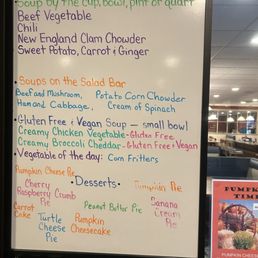 Soup by the cup, bowl, pint or quart
Beef Vegetable
Chili
New England Clam Chowder
Sweet Potato, Carrot & Ginger
• Soups on the Salad Bar
Beef and Mushroom, Potato Corn Chowder
Ham and Cabbage, Cream of Spinach
• Gluten Free & Vegan Soup - small bowl
Creamy Chicken Vegetable - Gluten Free
Creamy Broccoli Cheddar - Gluten Free & Vegan
• Vegetable of the day: Corn Fritters
Pumpkin Cheese Pie
• Desserts •
Pumpkin Pie
Cherry
Raspberry Crumb
Pie
Peanut Butter Pie
Banana
Cream
Pie
Carrot
Cake
Turtle
Cheese
Pie
Pumpkin
Cheesecake
PUMPK
TIME
PUMPKIN CHEES